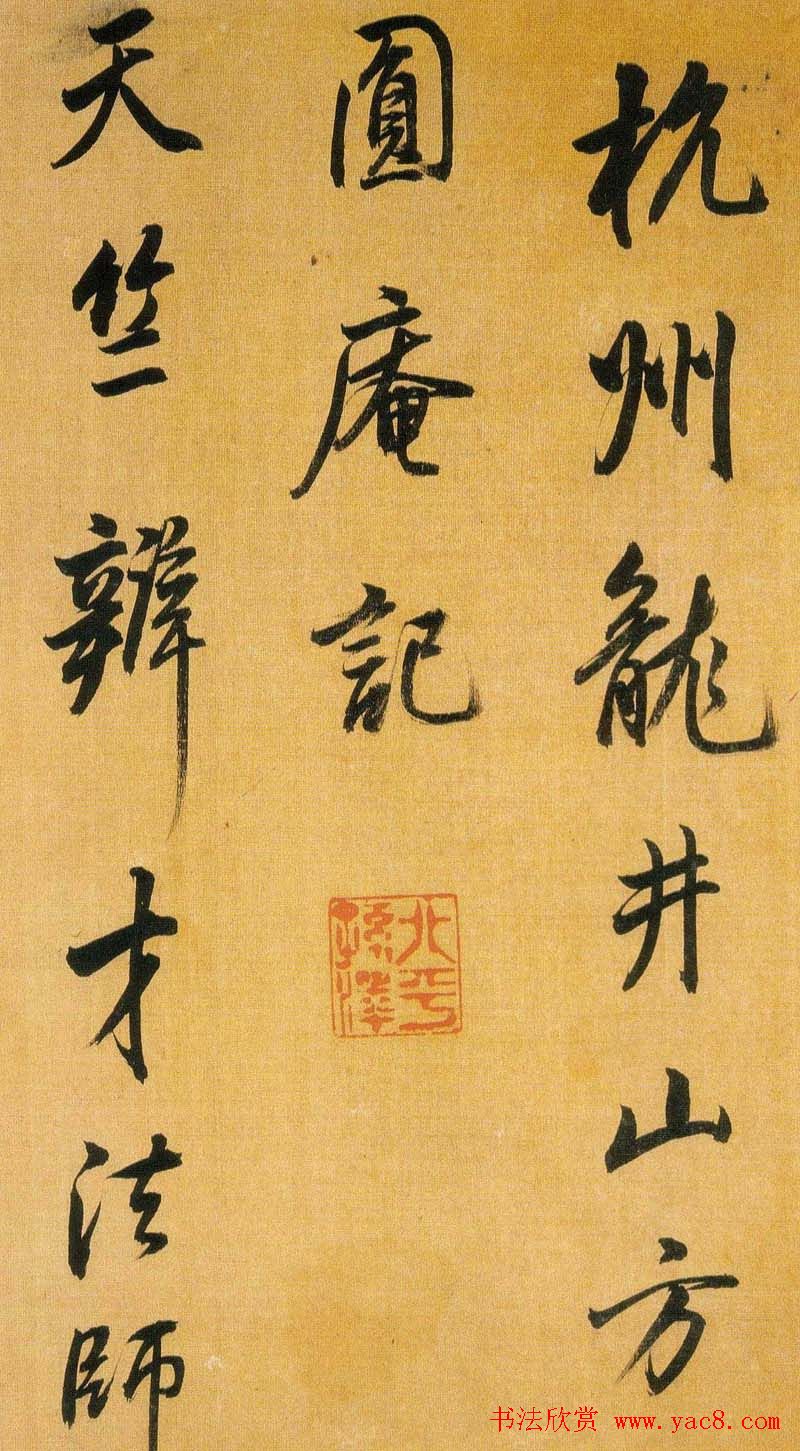 杭州龍井山方
圓庵記
天竺辯才法師
北平孫澤
书法欣赏 www.yac8.com